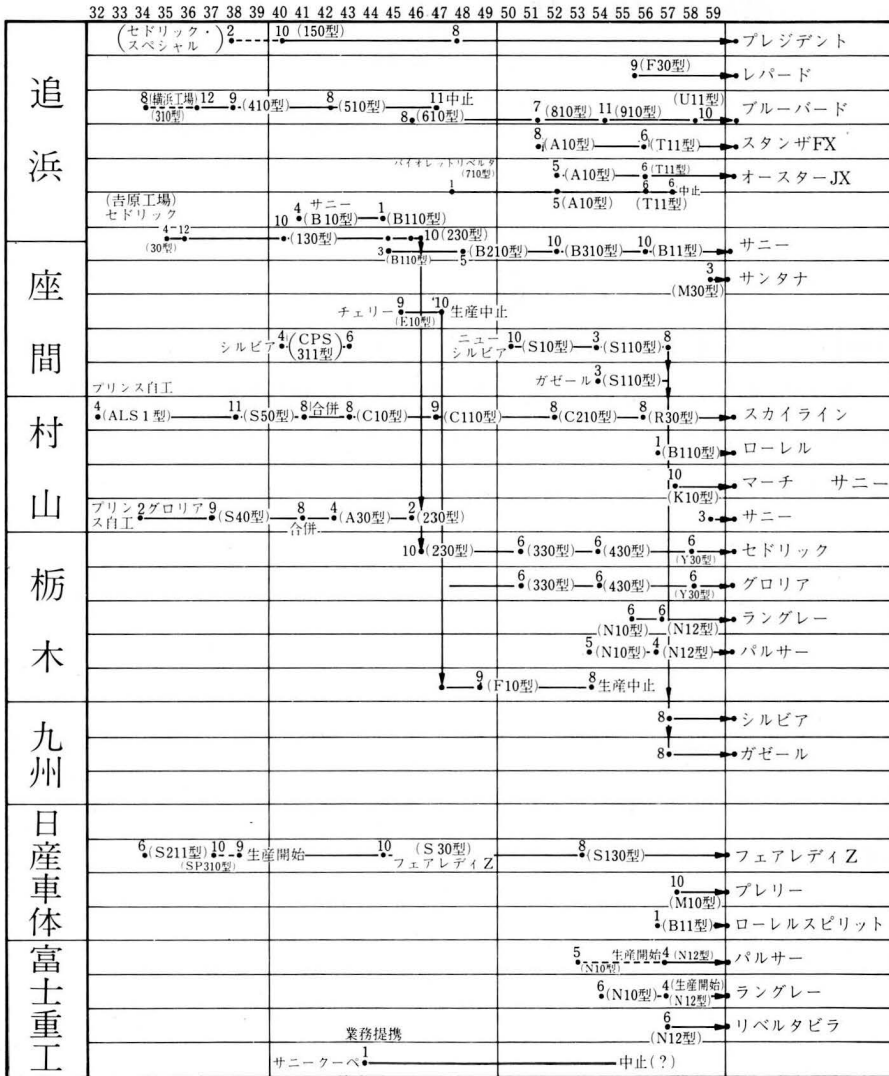 32 33 34 35 36 37 38 39 40 41 42 43 44 45 46 47 48 49 50 51 52 53 54 55 56 57 58 59
追浜
(セドリック・スペシャル) 2 10 (150型) 8 プレジデント
9 (F30型) レパード
8 (横浜工場) (310型) 12 9 (410型) 8 (510型) 11 中止 8 (610型) 7 (810型) 11 (910型) (U11型) 10 ブルーバード
8 (A10型) 6 (T11型) スタンザFX
バイオレットリベルタ (710型) 5 (A10型) 6 (T11型) オースターJX
1 5 (A10型) 6 (T11型) 6 中止
(吉原工場) セドリック サニー 4 (B10型) 1 (B110型)
4 12 (30型) 10 (130型) 10 (230型)
座間
3 (B110型) 5 (B210型) 10 (B310型) 10 (B11型) サニー
3 (M30型) サンタナ
チェリー 9 (E10型) '10 生産中止
シルビア 4 (CPS311型) 6 ニューシルビア 10 (S10型) 3 (S110型) 8
ガゼール 3 (S110型)
プリンス自工
村山
4 (ALS1型) 11 (S50型) 8 合併 8 (C10型) 9 (C110型) 8 (C210型) 8 (R30型) スカイライン
1 (B110型) ローレル
10 (K10型) マーチ サニー
プリンス自工 2 グロリア 9 (S40型) 8 合併 4 (A30型) 2 (230型) 3 サニー
栃木
10 (230型) 6 (330型) 6 (430型) 6 (Y30型) セドリック
6 (330型) 6 (430型) 6 (Y30型) グロリア
6 (N10型) 6 (N12型) ラングレー
5 (N10型) 4 (N12型) パルサー
9 (F10型) 8 生産中止
九州
8 シルビア
8 ガゼール
日産車体
6 (S211型) 10 (SP310型) 9 生産開始 10 (S30型) フェアレディZ 8 (S130型) フェアレディZ
10 (M10型) プレリー
1 (B11型) ローレルスピリット
富士重工
5 (N10型) 生産開始 4 (N12型) パルサー
6 (N10型) 4 (生産開始) (N12型) ラングレー
6 (N12型) リベルタビラ
業務提携
サニークーペ 1 中止(?)